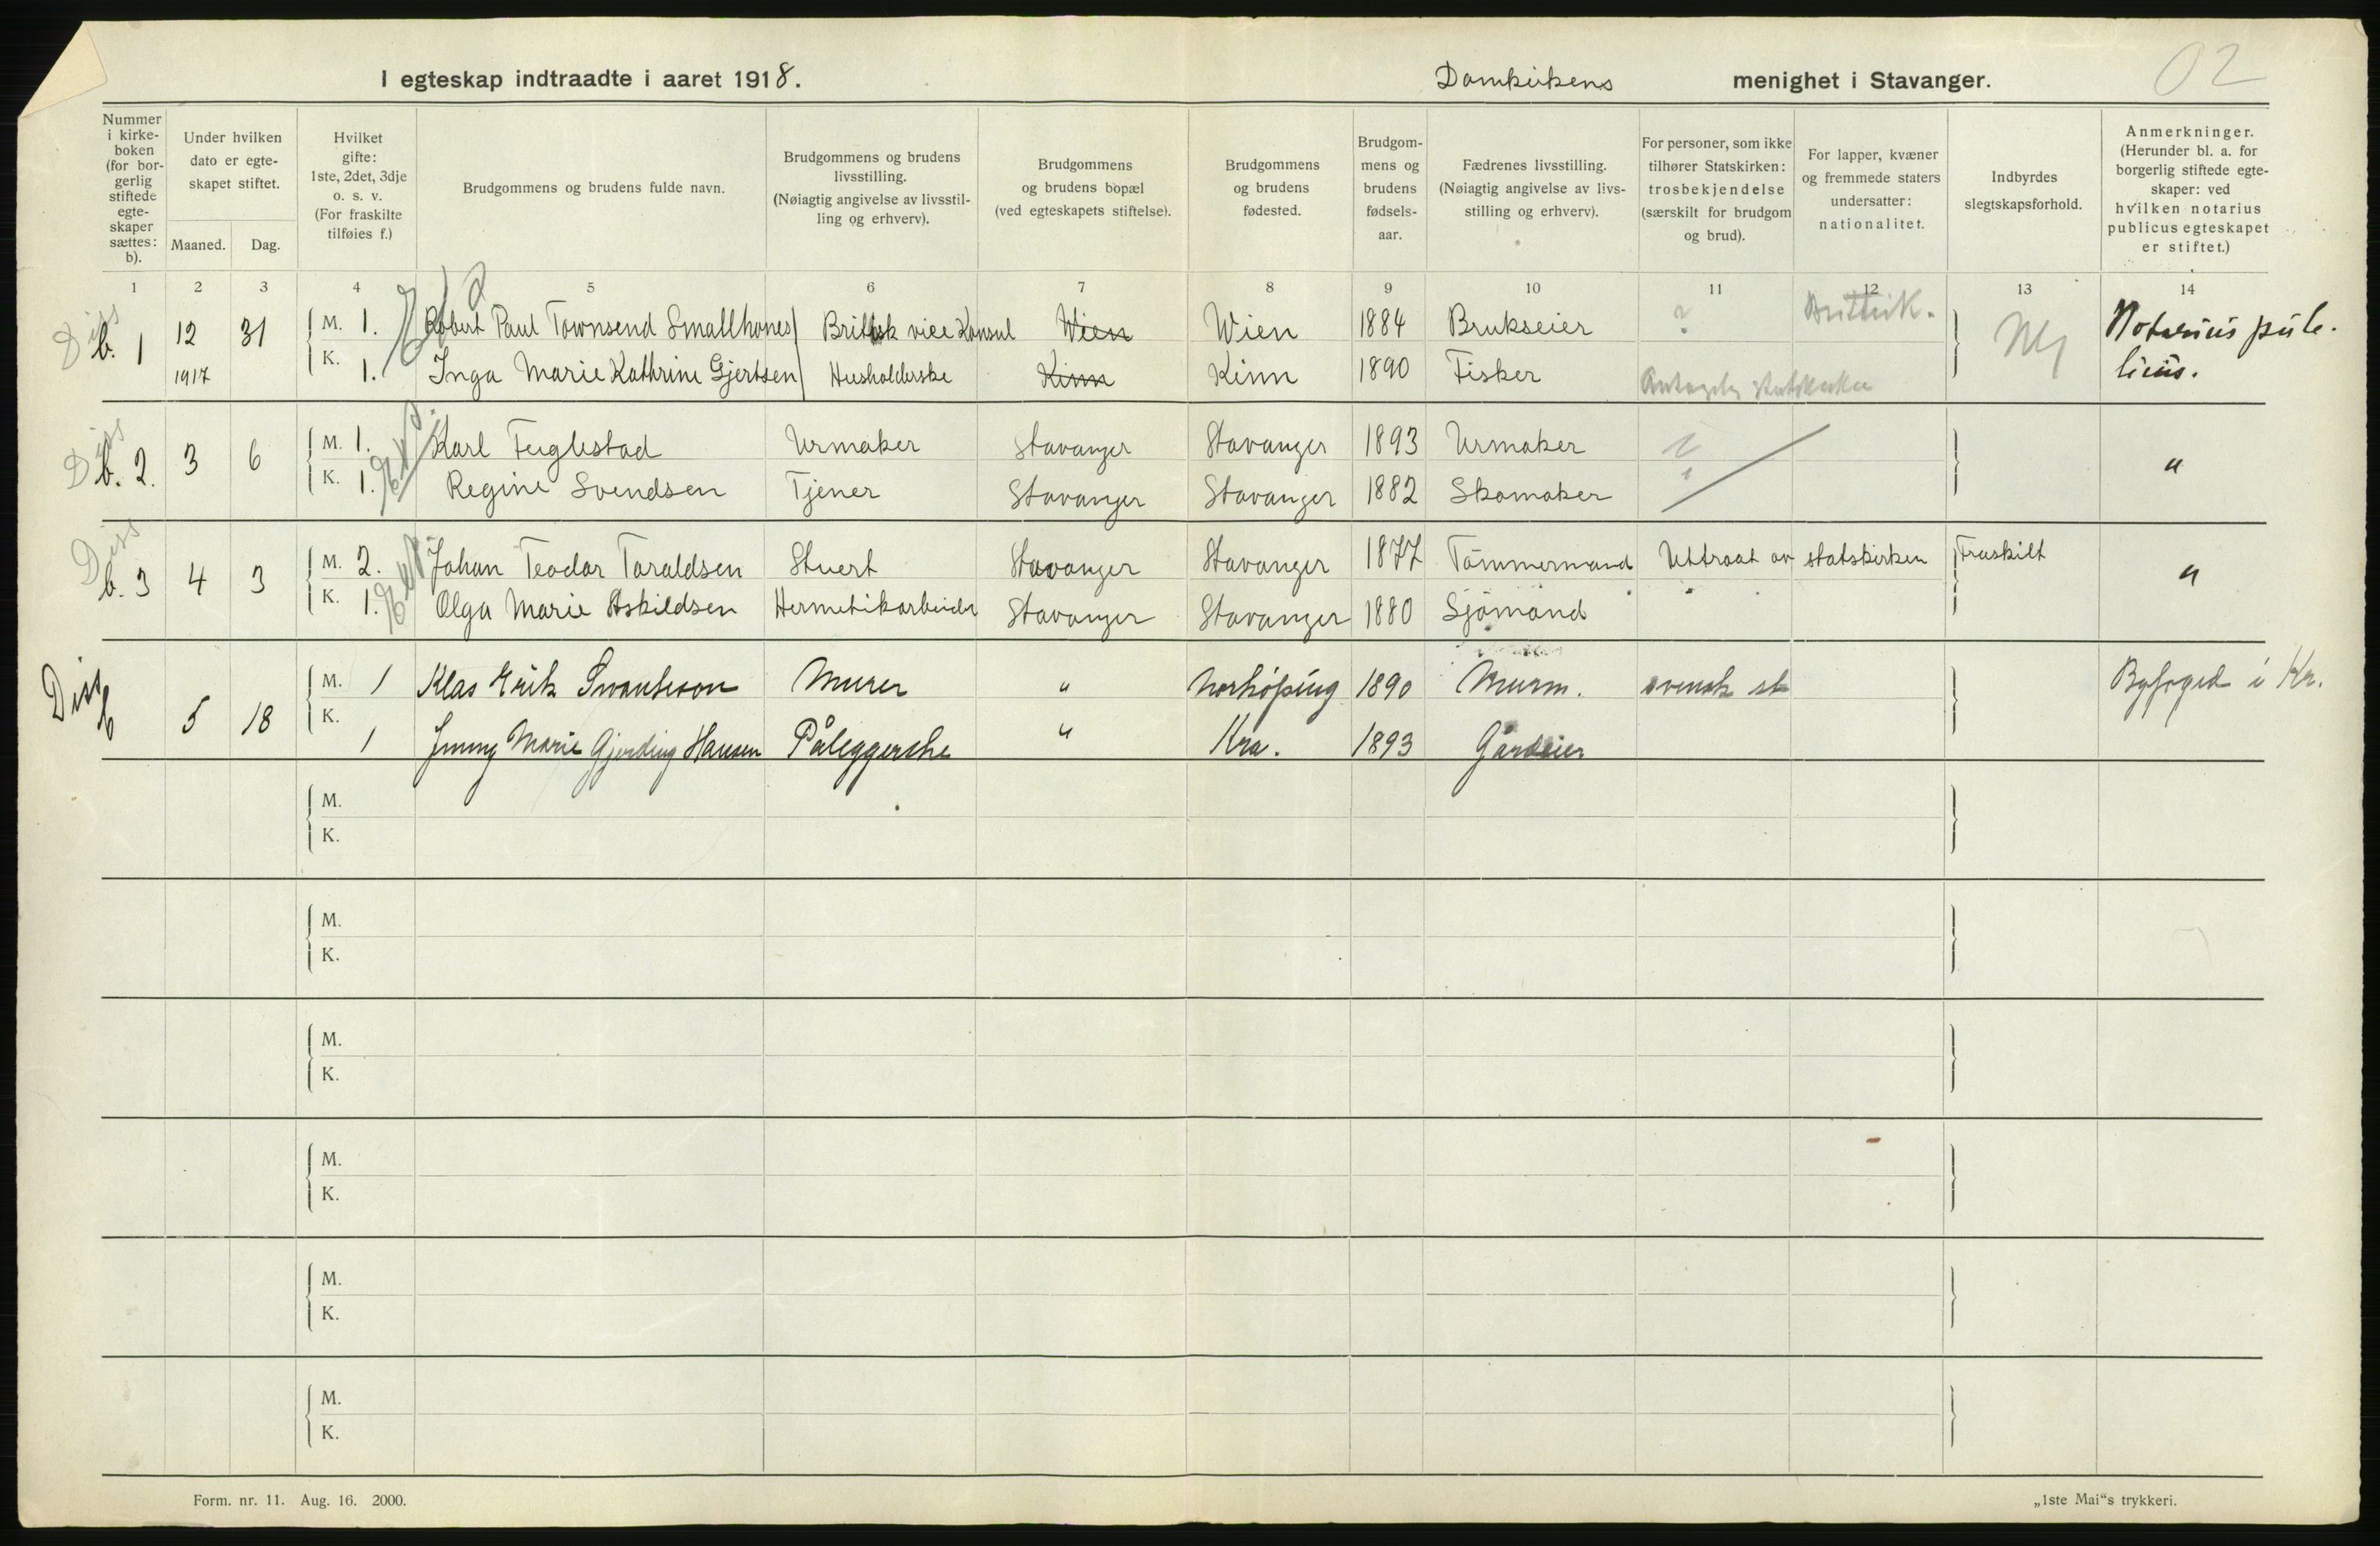 I egteskap indtraadte i aaret 1918. Domkirkens menighet i Stavanger. 02
Nummer i kirke- boken (for bor- gerlig stiftede egte- skaper sættes: b).
Under hvilken dato er egte- skapet stiftet.
Maaned. Dag.
Hvilket gifte: 1ste, 2det, 3dje o. s. v. (For fraskilte tilføies f.)
Brudgommens og brudens fulde navn.
Brudgommens og brudens livsstilling. (Nøiagtig angivelse av livsstil- ling og erhverv).
Brudgommens og brudens bopæl (ved egteskapets stiftelse).
Brudgommens og brudens fødested.
Brudgom- mens og brudens fødsels- aar.
Fædrenes livsstilling. (Nøiagtig angivelse av livs- stilling og erhverv).
For personer, som ikke tilhører Statskirken: trosbekjendelse (særskilt for brudgom og brud).
For lapper, kvæner og fremmede staters undersatter: nationalitet.
Indbyrdes slegtskapsforhold.
Anmerkninger. (Herunder bl. a. for borgerlig stiftede egte- skaper: ved hvilken notarius publicus egteskapet er stiftet.)
1 2 3 4 5 6 7 8 9 10 11 12 13 14
Diss b. 1 12 31 M. 1. Robert Paul Townsend Smallhones Britisk vice Konsul Wien Wien 1884 Brukseier ? Brittisk. Nej Notarius pub-
1917 K. 1. Inga Marie Kathrine Gjertsen Husholderske Kinn Kinn 1890 Fisker Antagelig statskirken licus.
Diss b. 2. 3 6 M. 1. Karl Fuglestad Urmaker Stavanger Stavanger 1893 Urmaker ? "
K. 1. Regine Svendsen Tjener Stavanger Stavanger 1882 Skomaker
Diss b. 3 4 3 M. 2. Johan Teodor Taraldsen Stuert Stavanger Stavanger 1877 Tømmermand Uttraat av statskirken Fraskilt "
K. 1. Olga Marie Askildsen Hermetikarbeider Stavanger Stavanger 1880 Sjømand
Diss b 5 18 M. 1 Klas Erik Svanteson Murer " Norköping 1890 Murm. svensk st Byfoged i Kr.
K. 1 Jenny Marie Gjerding Hansen Påleggerske " Kra. 1893 Gårdeier
M.
K.
M.
K.
M.
K.
M.
K.
M.
K.
M.
K.
Form. nr. 11. Aug. 16. 2000. „1ste Mai“s trykkeri.